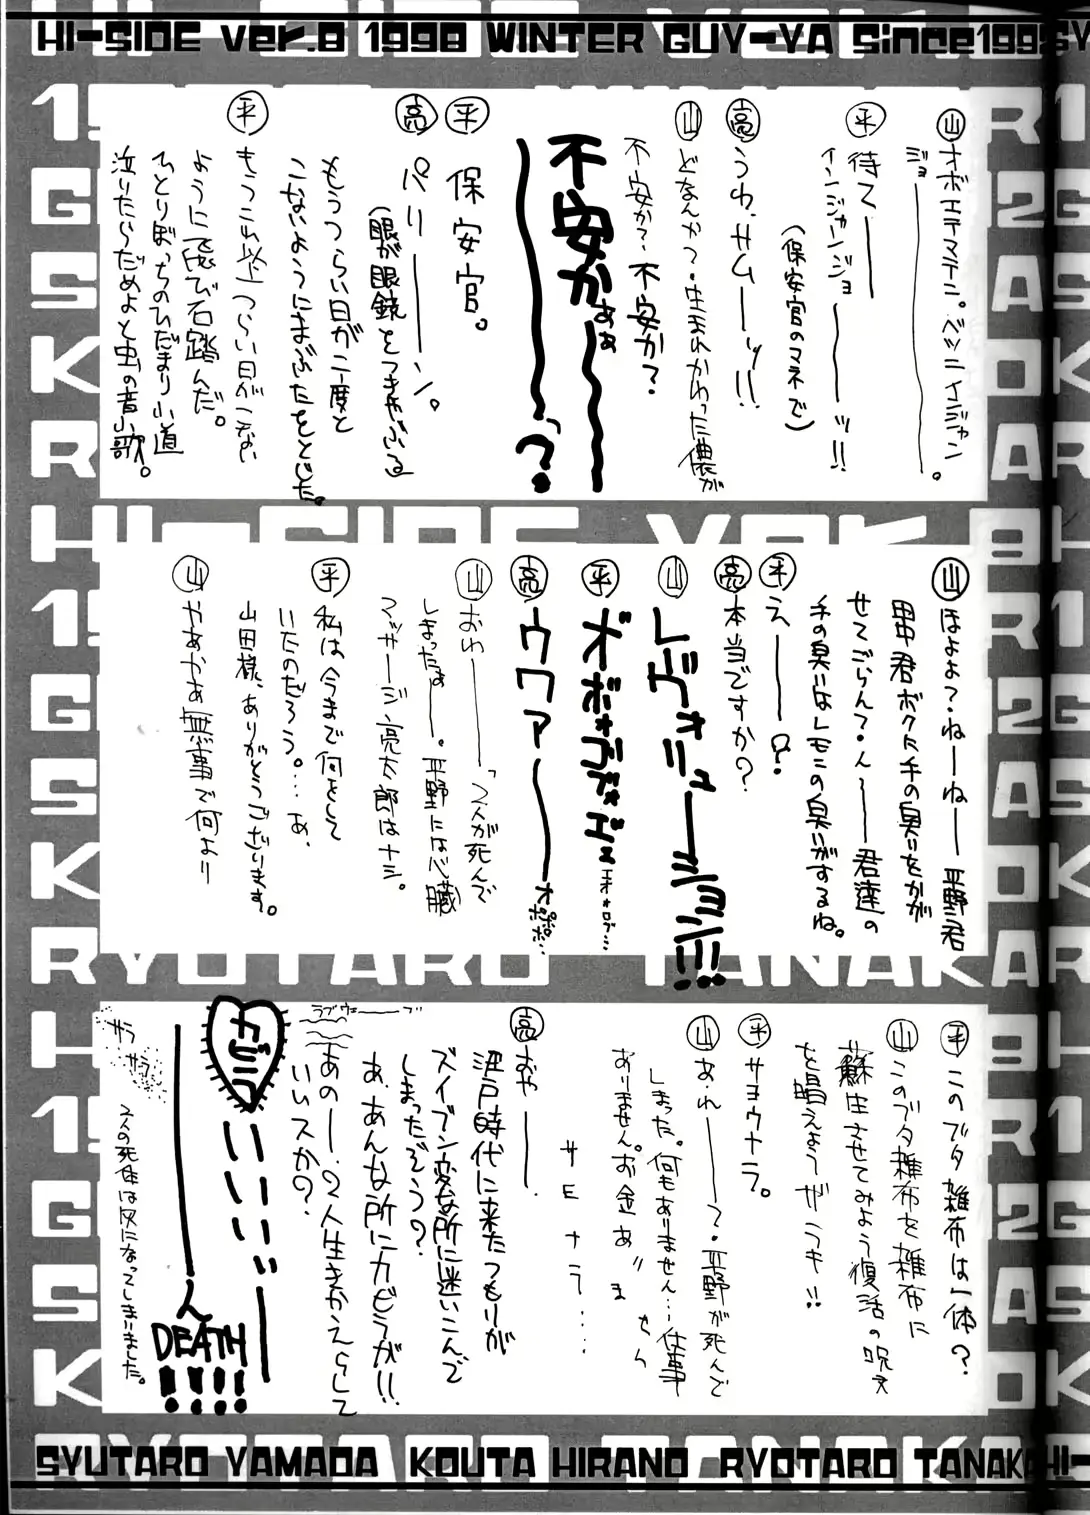 HI-SIDE ver.8 1998 WINTER GUY-YA Since1995
山 オボエテマテニ。ベツニインジャン
ジョーーー。
平 待てーーー
インジャンジョーーーッ!!
(保安官のマネで)
亮 うわ、サムーーッ!!
山 どなんかって・生まれかわった儂が
不安か?不安か?不安か?
不安かぁぁ〜〜〜〜
〜〜〜〜っ?
平 保安官。
亮 パリーーーン。
(眼が眼鏡をつきやぶる
もうつらい日が二度と
こないようにまぶたをとじた。
平 もうこれ以上つらい日がこない
ように飛び石踏んだ。
ひとりぼっちのひだまり小道
泣いたらだめよと虫の音小歌。
山 ほよよ?ねーねー平野君
田中君ボクに手の臭いをかが
せてごらんて・んー〜君達の
手の臭いはレモンの臭いがするね。
平 えーーー?
亮 本当ですか?
山 レヴォリューーション!!!
平 オボォゴブォゴェ
亮 ウワァ〜〜〜
オポポポ…
山 おわーーーっ2人が死んで
しまったぁーー。平野には心臓
マッサージ、亮太郎はナシ。
平 私は今まで何をして
いたのだろう。…あ、
山田様、ありがとうございます。
山 やあやあ無事で何より
平 このブタ雑布は一体?
山 このブタ雑布を雑布に
蘇生させてみよう復活の呪文
を唱えよう ザラキ!!
平 サヨウナラ。
山 あ、れーーーっ?平野が死んで
しまった。何もありません…仕事
ありません。お金あ〃ませら
サヨナラ….
亮 おやーー.
江戸時代に来たつもりが
ズイブン変な所に迷いこんで
しまったぞう?
あ、あんな所にカピラが!!
ラブウェーーブ
あのー、2人生きかえらして
いいスか?
カビラ
いいいいい
ーーーん
DEATH
!!!!
サラ
サラ
2人の死体は灰になってしまいました。
SYUTARO YAMADA KOUTA HIRANO RYOTARO TANAKA HI-